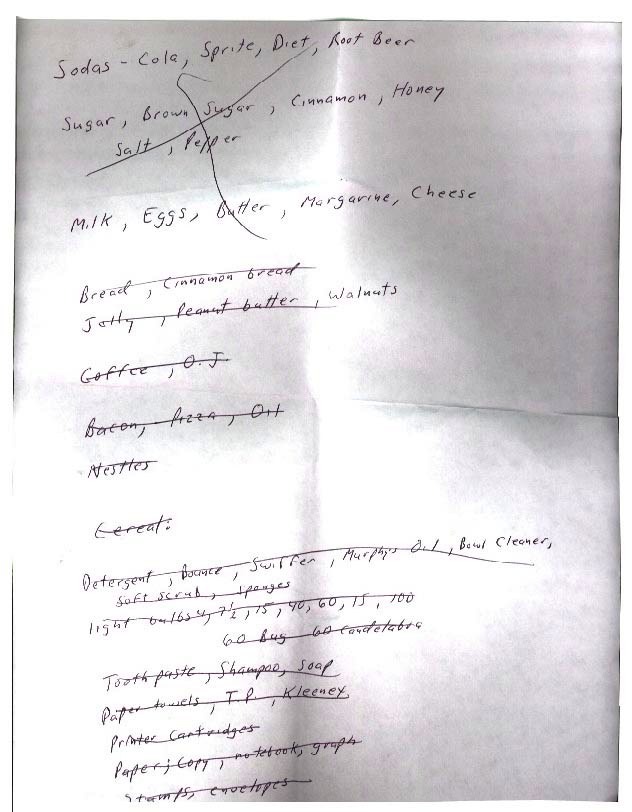 Sodas - Cola, Sprite, Diet, Root Beer
Sugar, Brown Sugar, Cinnamon, Honey
Salt, Pepper
Milk, Eggs, Butter, Margarine, Cheese
Bread, Cinnamon bread
Jelly, Peanut butter, Walnuts
Coffee, O.J
Bacon, Pizza, Oil
Nestles
Cereal:
Detergent, Bounce, Swiffer, Murphys Oil, Bowl Cleaner,
Soft scrub, sponges
light bulbs 4, 7½, 15, 40, 60, 15, 100
60 Bug 60 Candelabra
Tooth paste, Shampoo, soap
Paper towels, T.P., Kleenex
Printer Cartridges
Paper; Copy, notebook, graph
Stamps, envelopes